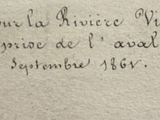 our la Rivière Vi
prise de l'aval
Septembre 1861.